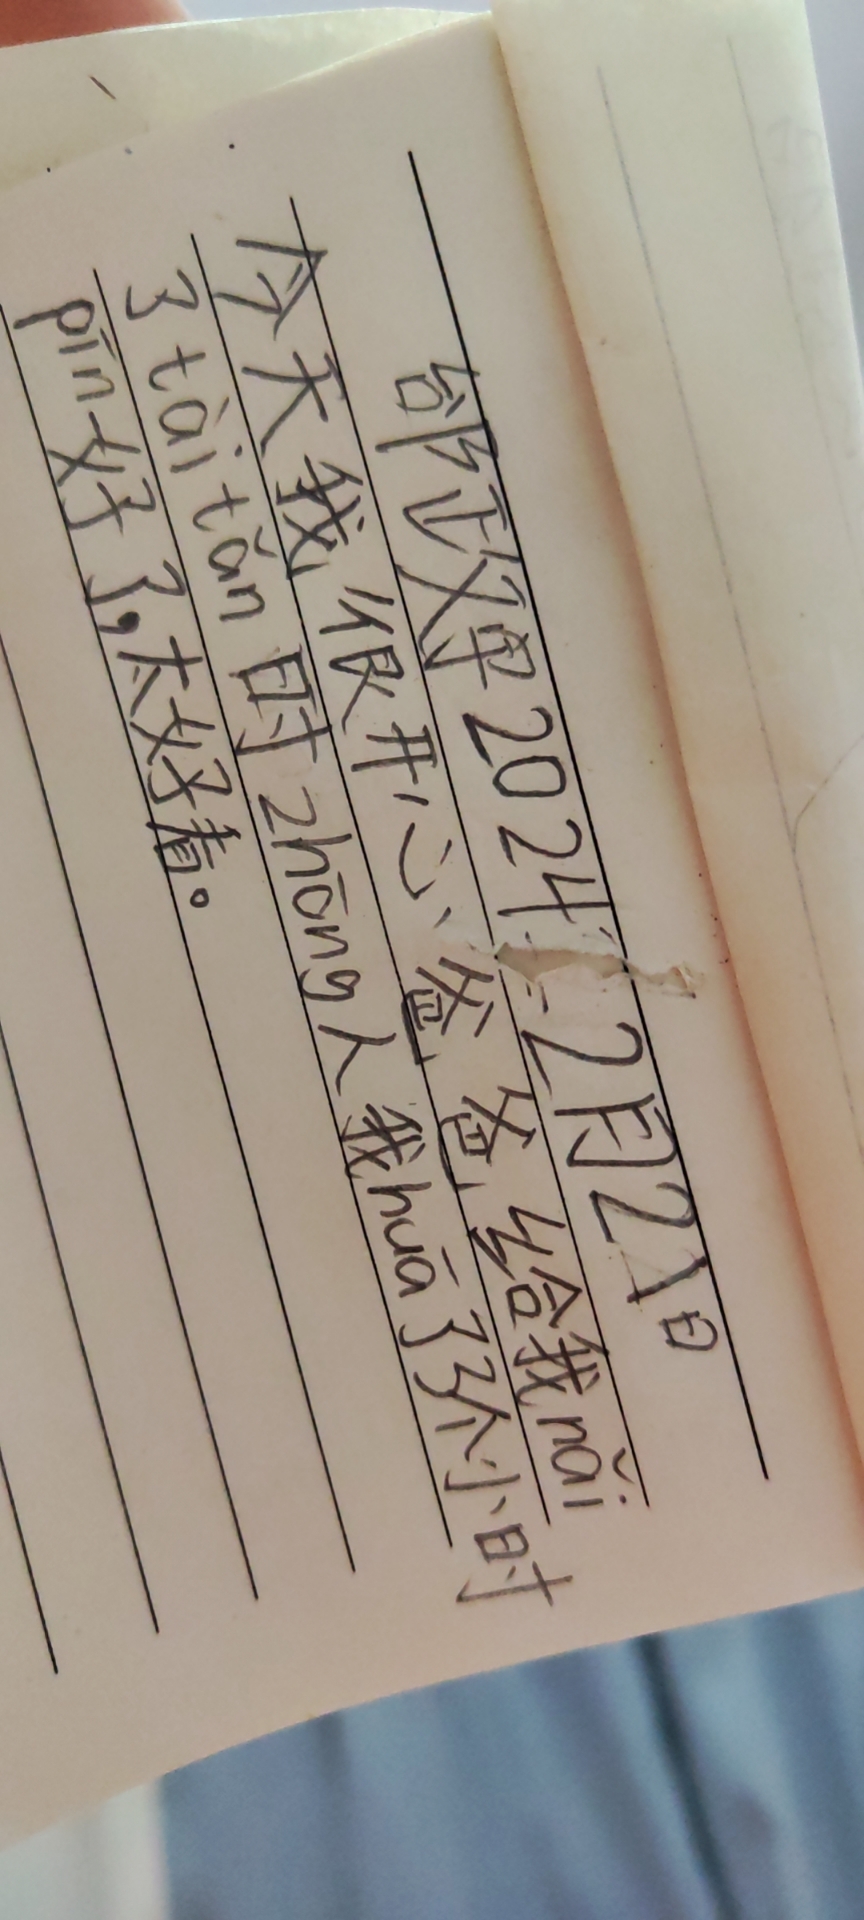 邰政烨2024.2月21日
今天我很开心、爸爸给我nǎi
了tài tǎn 时zhōng人我huā了3个小时
pīn好了,太好看。